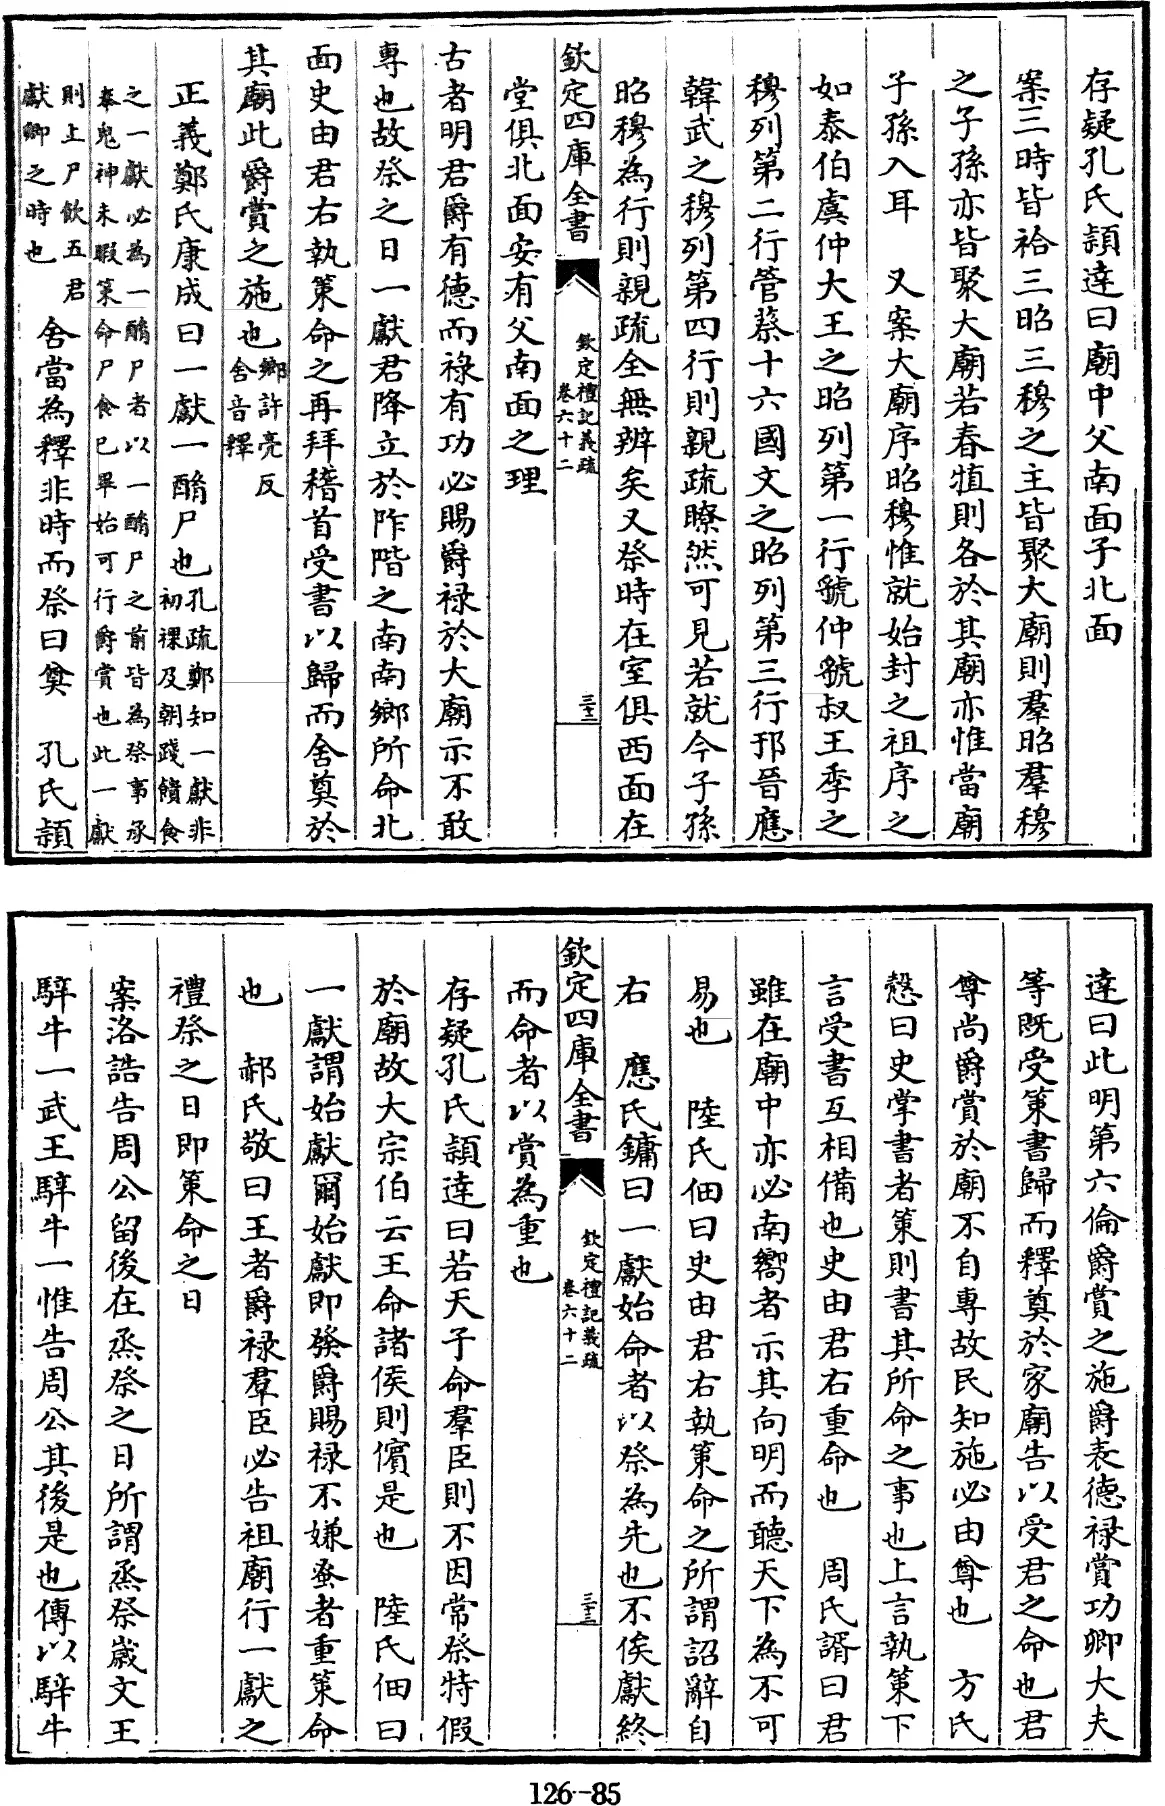 存疑孔氏頴達曰廟中父南面子北面
案三時皆祫三昭三穆之主皆聚大廟則羣昭羣穆
之子孫亦皆聚大廟若春犆則各於其廟亦惟當廟
子孫入耳　又案大廟序昭穆惟就始封之祖序之
如泰伯虞仲大王之昭列第一行虢仲虢叔王季之
穆列第二行管蔡十六國文之昭列第三行邘晉應
韓武之穆列第四行則親疏瞭然可見若就今子孫
昭穆為行則親疏全無辨矣又祭時在室俱西面在
欽定四庫全書
欽定禮記義疏
卷六十二
三十二
堂俱北面安有父南面之理
古者明君爵有德而祿有功必賜爵祿於大廟示不敢
專也故祭之日一獻君降立於阼階之南南鄉所命北
面史由君右執策命之再拜稽首受書以歸而舍奠於
其廟此爵賞之施也鄉許亮反
舍音釋
正義鄭氏康成曰一獻一酳尸也孔疏鄭知一獻非
初祼及朝踐饋食
之一獻必為一酳尸者以一酳尸之前皆為祭事承
奉鬼神未暇策命尸食已畢始可行爵賞也此一獻
則上尸飲五君
獻卿之時也　舍當為釋非時而祭曰奠　孔氏頴
達曰此明第六倫爵賞之施爵表德祿賞功卿大夫
等既受策書歸而釋奠於家廟告以受君之命也君
尊尚爵賞於廟不自專故民知施必由尊也　方氏
慤曰史掌書者策則書其所命之事也上言執策下
言受書互相備也史由君右重命也　周氏諝曰君
雖在廟中亦必南嚮者示其向明而聽天下為不可
易也　陸氏佃曰史由君右執策命之所謂詔辭自
右　應氏鏞曰一獻始命者以祭為先也不俟獻終
欽定四庫全書
欽定禮記義疏
卷六十二
三十三
而命者以賞為重也
存疑孔氏頴達曰若天子命羣臣則不因常祭特假
於廟故大宗伯云王命諸侯則儐是也　陸氏佃曰
一獻謂始獻爾始獻即發爵賜祿不嫌蚤者重策命
也　郝氏敬曰王者爵祿羣臣必告祖廟行一獻之
禮祭之日即策命之日
案洛誥告周公留後在烝祭之日所謂烝祭歲文王
騂牛一武王騂牛一惟告周公其後是也傳以騂牛
126-85